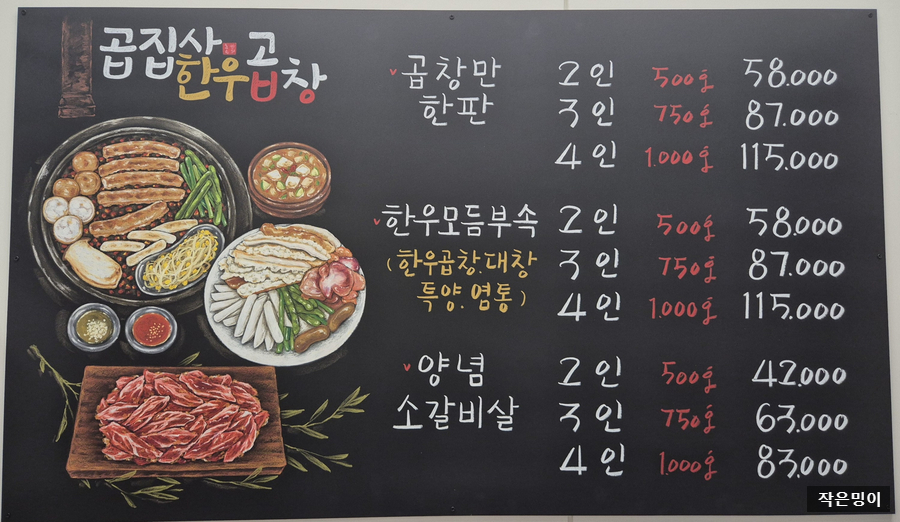 곱집사
한우곱창
곱창만 2인 500g 58.000
한판 3인 750g 87.000
4인 1.000g 115.000
한우모듬부속 2인 500g 58.000
(한우곱창.대창 3인 750g 87.000
특양.염통) 4인 1.000g 115.000
양념 2인 500g 42.000
소갈비살 3인 750g 63.000
4인 1.000g 83.000
작은밍이